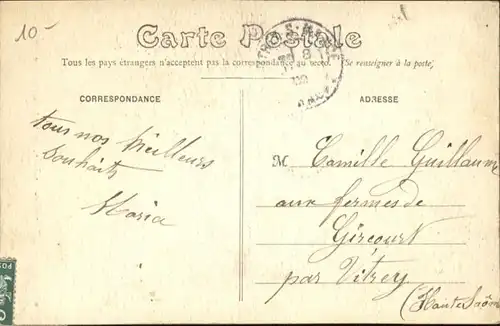 10-
Carte Postale
Tous les pays étrangers n'acceptent pas la correspondance au recto. (Se renseigner à la poste)
CORRESPONDANCE
ADRESSE
tous nos meilleurs
souhaits
Maria
M Camille Guillaume
aux fermes de
Gircourt
par Vitrey
(Haute Saône